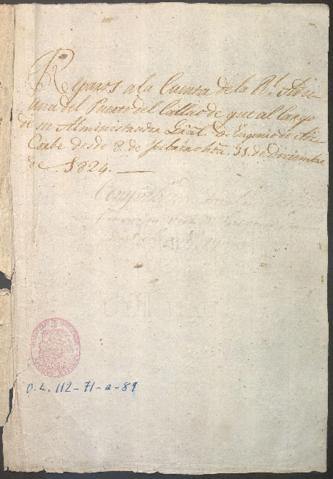 Reparos a la Cuenta de la Rl. Adu
ana del Puerto del Callao de que al cargo
de su Administrador Gral. Dn. Eugenio de Aiz
Corbe desde 8 de Julio hta. 31 de Diciembre
de 1824.
O.L. 112-71-a-89